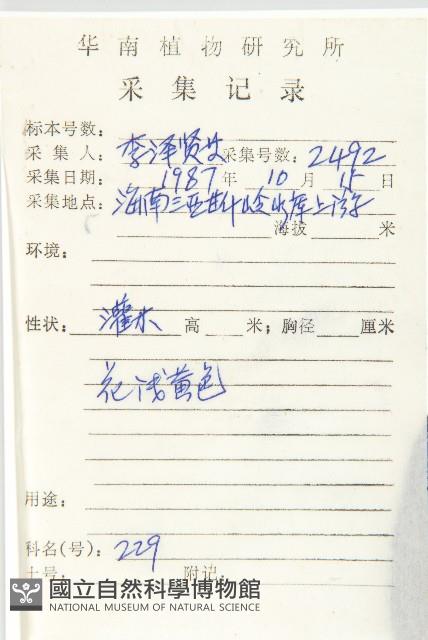 华南植物研究所
采集记录
标本号数：
采集人：李泽贤 采集号数：2492
采集日期：1987年10月15日
采集地点：海南三亚甘什岭水库上游
海拔 米
环境：
性状：灌木 高 米；胸径 厘米
花浅黄色
用途：
科名(号)：229
土名： 附记：
國立自然科學博物館
NATIONAL MUSEUM OF NATURAL SCIENCE